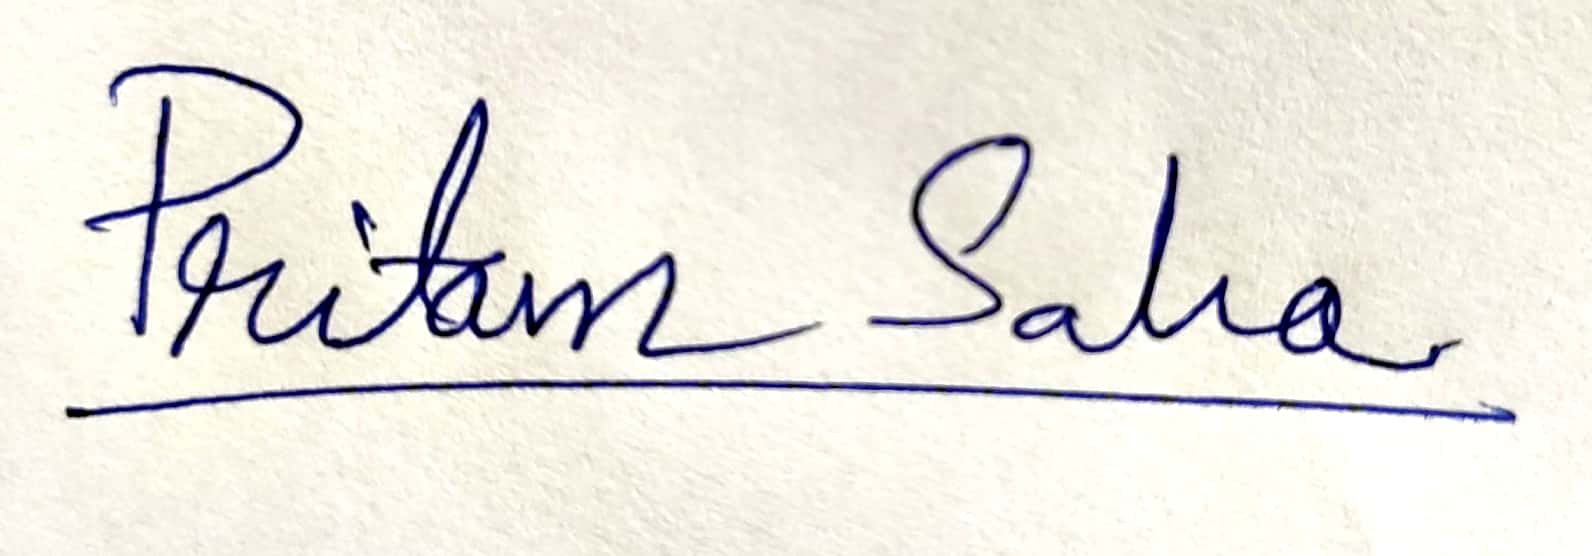 Pritam Saha